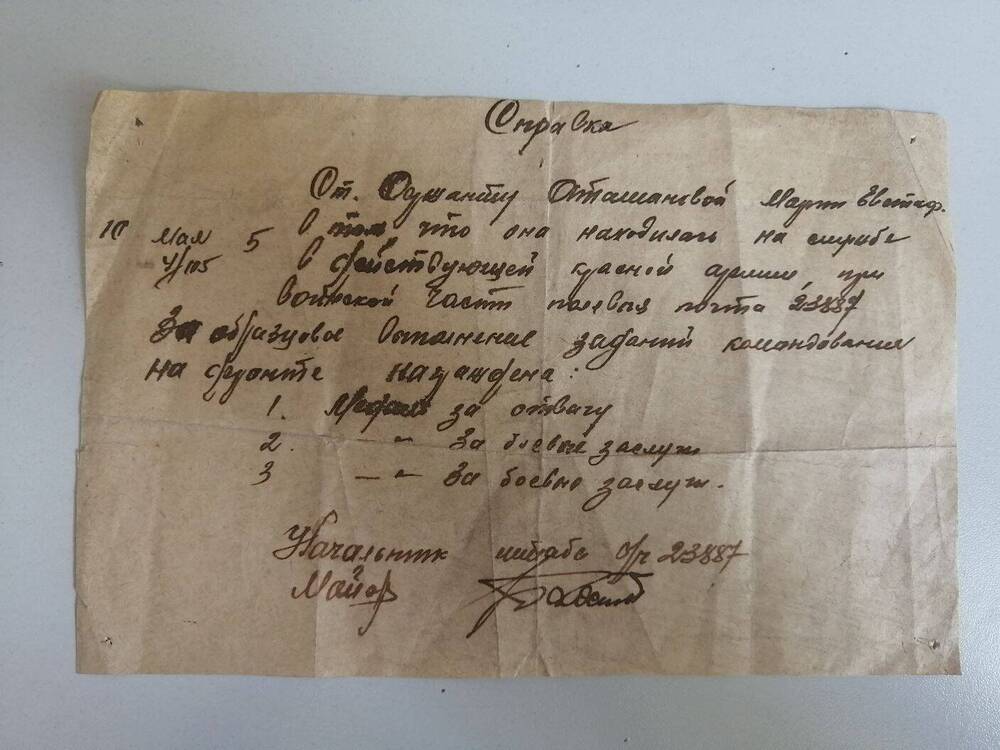 Справка
Ст. Сержанту Оташановой Марии Евстаф.
10 мая 5 В том что она находилась на службе
4/105 В действующей красной армии при
воинской части полевыя почта 23887
За образцовое выполнение заданий командования
на фронте награждена:
1. Медаль за отвагу
2. — " За боевые заслуги
3 — " За боевые заслуги.
Начальник штаба в/ч 23887
Майор